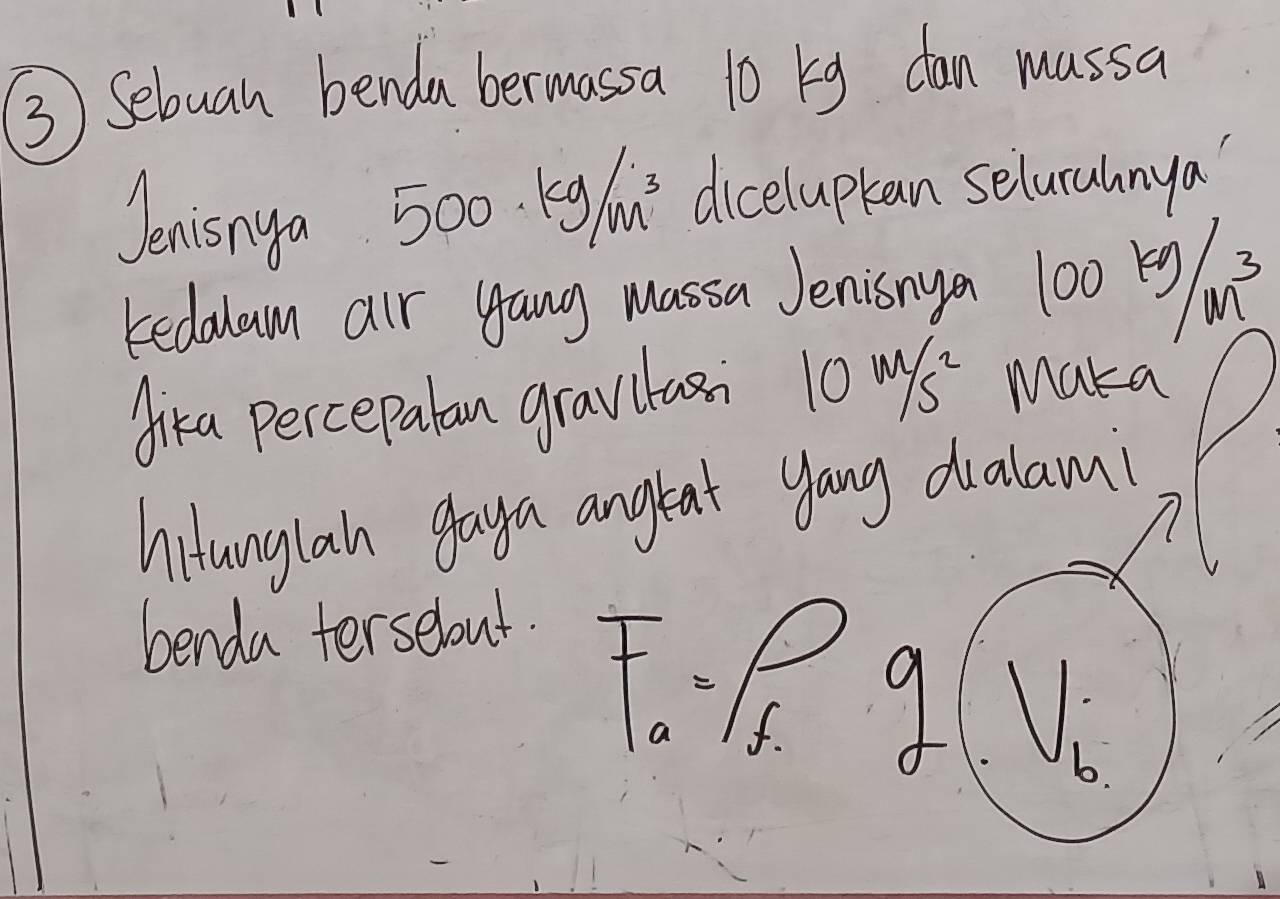 ③ Sebuah benda bermassa 10 kg dan massa
Jenisnya 500 kg/m³ dicelupkan seluruhnya
kedalam air yang massa Jenisnya 100 kg/m³
Jika percepatan gravitasi 10 m/s² Maka
hitunglah gaya angkat yang dialami
benda tersebut.
Fₐ = ρ_f. g . V_b.
ρ